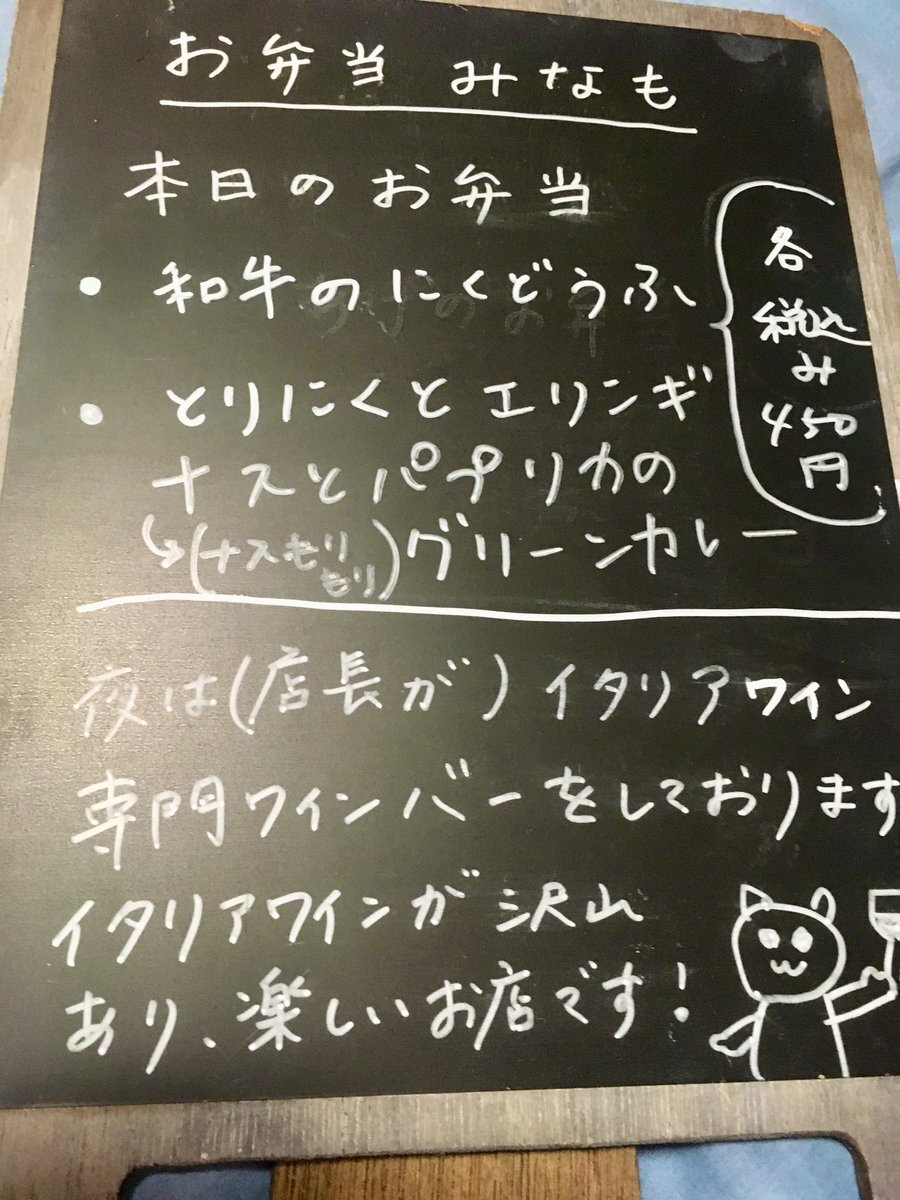 お弁当 みなも
本日のお弁当
・ 和牛のにくどうふ
・ とりにくとエリンギ
ナスとパプリカの
↳(ナスもりもり)グリーンカレー
各
税込
み
450
円
夜は(店長が)イタリアワイン
専門ワインバーをしております
イタリアワインが沢山
あり、楽しいお店です!